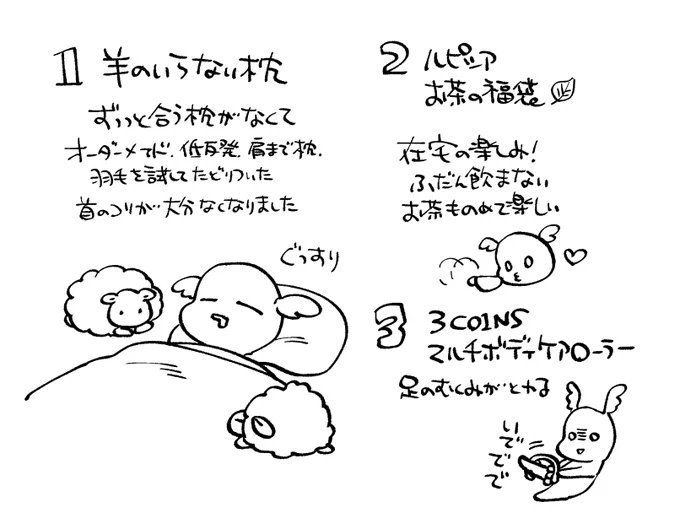 1 羊のいらない枕
ずっと合う枕がなくて
オーダーメイド、低反発、肩まで枕、
羽毛を試してたどりついた
首のコリが大分なくなりました
ぐっすり
2 ルピシア
お茶の福袋
在宅の楽しみ!
ふだん飲まない
お茶ものめて楽しい
3 3COINS
マルチボディケアローラー
足のむくみがとれる
いでででで